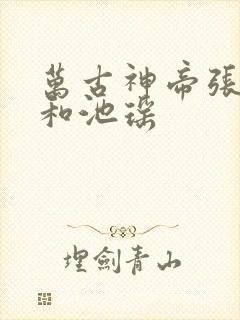 萬古神帝張
和池瑤
埋劍青山